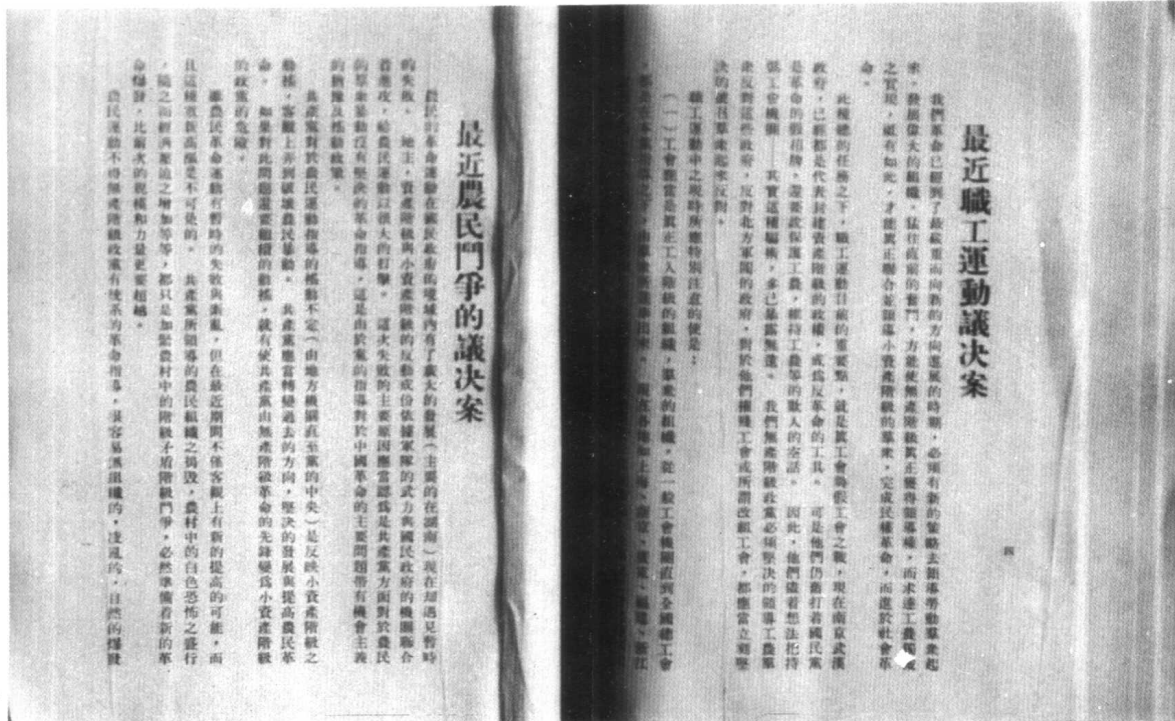 最近職工運動議决案
我們革命已經到了最嚴重而向新的方向進展的時期，必須有新的策略去領導勞動羣衆起
來，發展偉大的組織，猛往直前的奮鬥，方能使無產階級眞正獲得領導權，而求達工農獨裁
之實現，祇有如此，才能眞正聯合並領導小資產階級的羣衆，完成民權革命，而進於社會革
命。
此種總的任務之下，職工運動目前的重要點，就是眞工會與假工會之戰，現在南京武漢
政府，已經都是代表封建資產階級的政權，或爲反革命的工具。　可是他們仍舊打着國民黨
是革命的假招牌，還要說保護工農，維持工農等的欺人的空話。　因此，他們儘着想法把持
工會機關——其實這種騙術，多已暴露無遺。　我們無產階級政黨必須堅决的領導工農羣
衆反對這些政府，反對北方軍閥的政府，對於他們摧殘工會或所謂改組工會，都應當立刻堅
决的號召羣衆起來反對。
職工運動中之現時所應特別注意的便是：
（一）工會應當是眞正工人階級的組織，羣衆的組織，從一般工會機關直到全國總工會
指導之下，由羣衆所選舉出來。　現在各地如上海、南京、
四
最近農民鬥爭的議决案
農民的革命運動在國民政府的境域內有了廣大的發展（主要的在湖南）現在却遇見暫時
的失敗。　地主，資產階級與小資產階級的反動成份依據軍隊的武力與國民政府的機關聯合
着進攻，給農民運動以很大的打擊。　這次失敗的主要原因應當認爲是共產黨方面對於農民
的羣衆暴動沒有堅决的革命指導，這是由於黨的指導對於中國革命的主要問題帶有機會主義
的猶豫及搖動政策。
共產黨對於農民運動指導的搖動不定（由地方機關直至黨的中央）是反映小資產階級之
動搖，客觀上弄到破壞農民暴動。　共產黨應當轉變過去的方向，堅决的發展與提高農民革
命。　如果對此問題還要繼續的動搖，就有使共產黨由無產階級革命的先鋒變爲小資產階級
的政黨的危險。
雖農民革命運動有暫時的失敗與紊亂，但在最近期間不僅客觀上有新的提高的可能，而
且這種重新高漲是不可免的。　共產黨所領導的農民組織之搗毀，農村中的白色恐怖之盛行
，隨之而經濟壓迫之增加等等，都只是加緊農村中的階級矛盾階級鬥爭，必然準備着新的革
命爆發，比前次的規模和力量更要超越。
農民運動不得無產階級政黨有統系的革命指導，很容易無組織的，凌亂的，自然的爆發